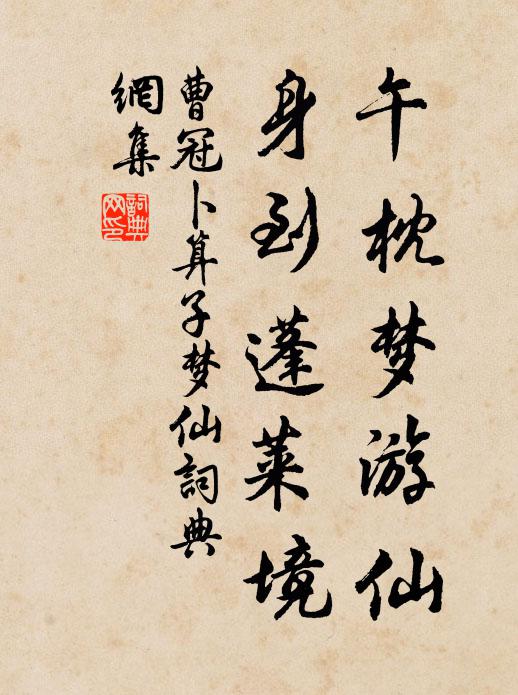 午枕梦游仙
身到蓬莱境
曹冠卜算子梦仙詞典
網集
詞典
网印